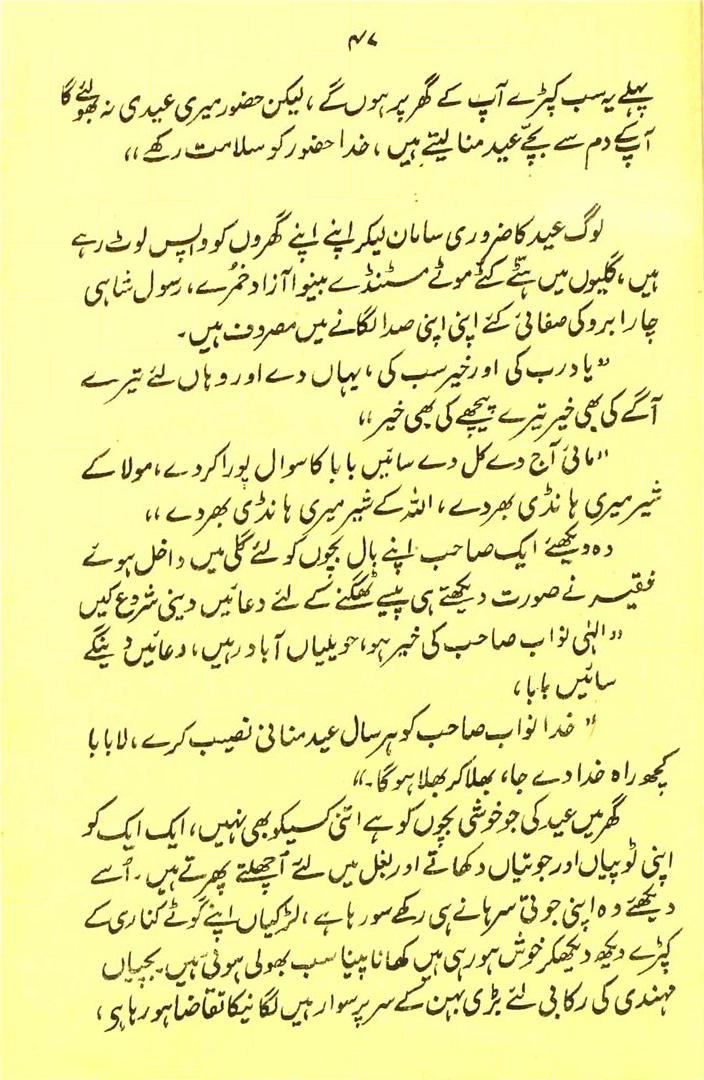 ۴۷
پہلے یہ سب کپڑے آپ کے گھر پر ہوں گے ، لیکن حضور میری عیدی نہ بھولئے گا
آپکے دم سے بچّے عید منا لیتے ہیں ، خدا حضور کو سلامت رکھے ،،
لوگ عید کا ضروری سامان لیکر اپنے اپنے گھروں کو واپس لوٹ رہے
ہیں ، گلیوں میں ہٹّے کٹّے موٹے مسٹنڈے بینوا آزاد خمرے ، رسول شاہی
چار ابرو کی صفائی کئے اپنی اپنی صدا لگانے میں مصروف ہیں۔
”یاد رب کی اور خیر سب کی ، یہاں دے اور وہاں لئے تیرے
آگے کی بھی خیر تیرے پیچھے کی بھی خیر ،،
”مائی آج دے کل دے سائیں بابا کا سوال پورا کر دے ، مولا کے
شیر میری ہانڈی بھر دے ، اللہ کے شیر میری ہانڈی بھر دے ،،
وہ دیکھئے ایک صاحب اپنے بال بچوں کو لئے گلی میں داخل ہوئے
فقیر نے صورت دیکھتے ہی پیسے ٹھگنے کے لئے دعائیں دینی شروع کیں
”الہٰی نواب صاحب کی خیر ہو ، حویلیاں آباد رہیں ، دعائیں دینگے
سائیں بابا ،
” خدا نواب صاحب کو ہر سال عید منانی نصیب کرے ، لا بابا
کچھ راہ خدا دے جا ، بھلا کر بھلا ہوگا۔“
گھر میں عید کی جو خوشی بچوں کو ہے اتنی کسیکو بھی نہیں ، ایک ایک کو
اپنی ٹوپیاں اور جوتیاں دکھاتے اور بغل میں لئے اُچھلتے پھرتے ہیں ۔ اُسے
دیکھئے وہ اپنی جوتی سرہانے ہی رکھے سو رہا ہے ، لڑکیاں اپنے گوٹے کناری کے
کپڑے دیکھ دیکھکر خوش ہو رہی ہیں کھانا پینا سب بھولی ہوئی ہیں ۔ بچیاں
مہندی کی رکابی لئے بڑی بہن کے سر پر سوار ہیں لگانیکا تقاضا ہو رہا ہی ،